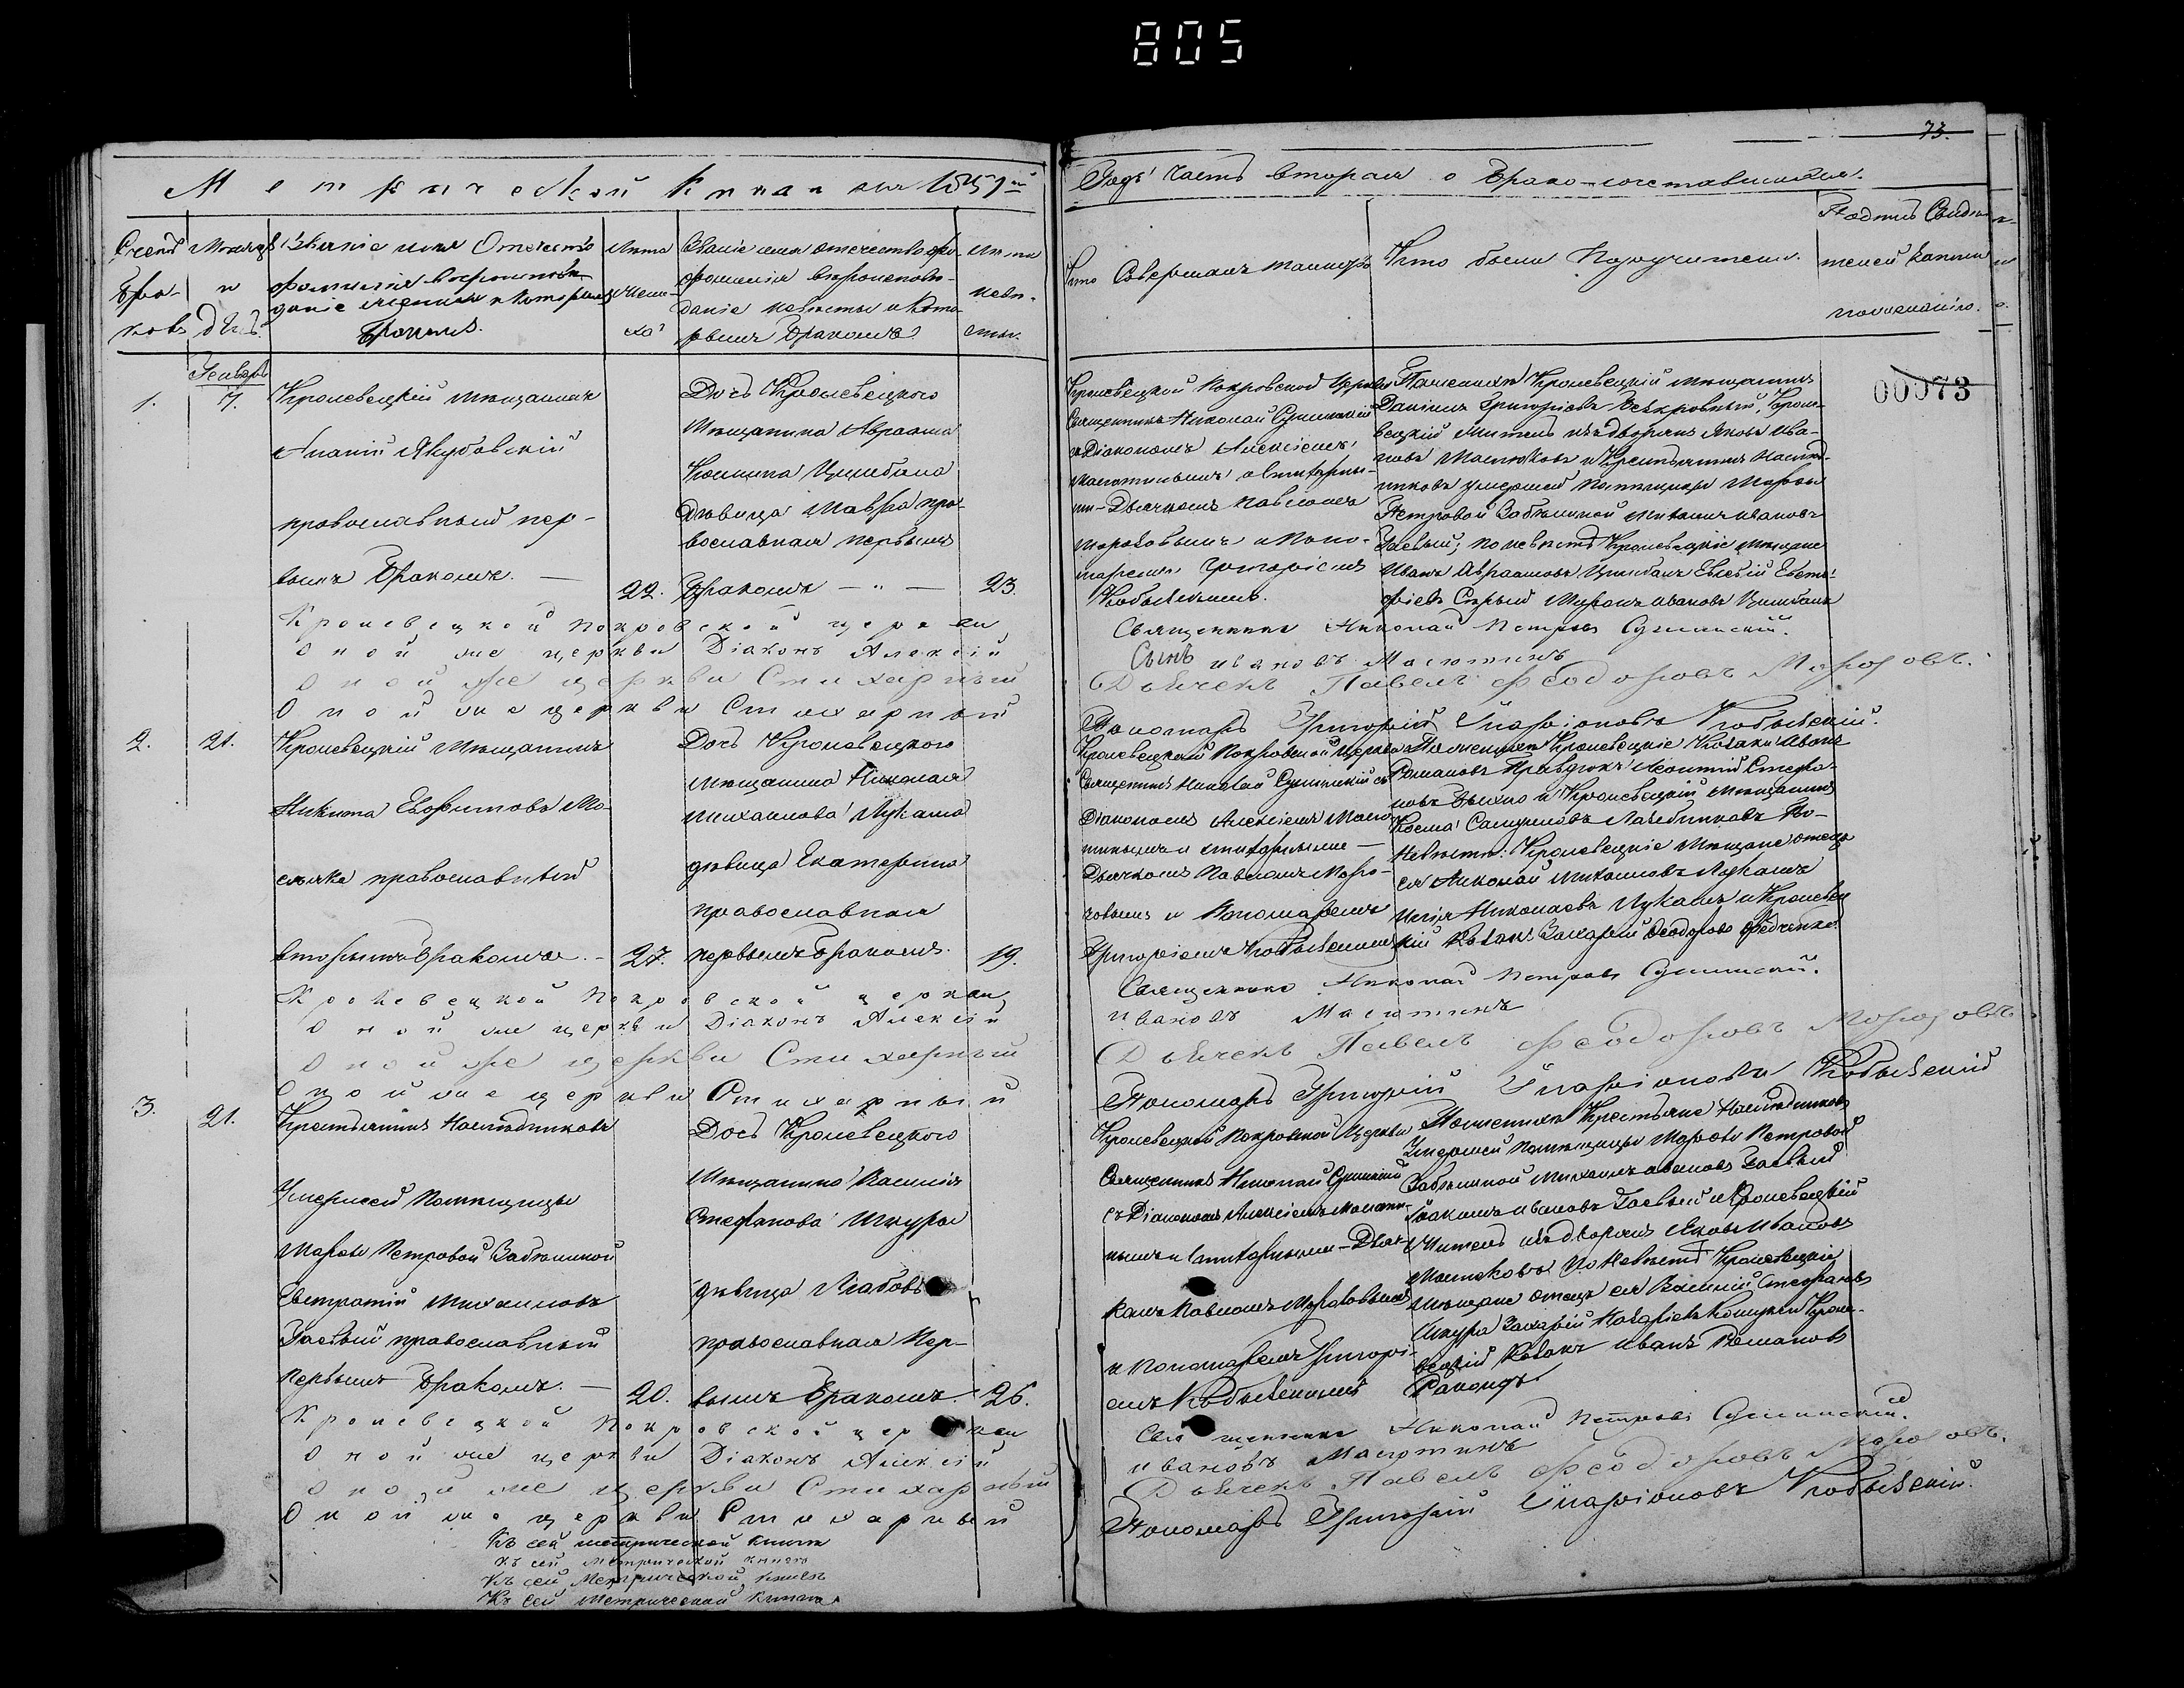 805
73.
Метрической книги на 1851й
Годъ часть вторая о Брако-сочетавшихся.
Счетъ Бра-ковъ
Мѣсяцъ и день
Званіе имя Отечество фамилія вѣроисповѣданіе жениха и которымъ Бракомъ.
Лѣта жени-ха
Званіе имя отечество фамилія вѣроисповѣ-даніе невѣсты и кото-рымъ Бракомъ
Лѣта невѣ-сты.
Кто Совершалъ таинство
Кто были Поручители.
Подпись Свидѣ-телей записи по желанію.
00073
Генварь
1.
7.
Кролевецкій мѣщанинъ
Ананій Якубовскій
православный пер-
вымъ Бракомъ. —
22.
Дочь Кролевецкого
Мѣщанина Авраама
Цимбала
Дѣвица Мавра пра-
вославная первымъ
Бракомъ — " —
23.
Кролевецкой Покровской Церкви
Священникъ Николай Сушинскій
съ Діакономъ Алексіемъ
Масютинымъ и стихарны-
ми - Дьячкомъ Павломъ
Морозовымъ и Поно-
маремъ Григоріемъ
По женихѣ Кролевецкій мѣщанинъ
Даніилъ Григорьевъ Безкровный, Кроле-
вецкій житель изъ дворянъ Яковъ Ива-
новъ и Крестьянинъ Наслѣд-
никовъ умершей помѣщицы Марфы
Петровой Забѣлиной Михаилъ Ивановъ
Заевый; по невѣстѣ Кролевецкіе мѣщане
Иванъ Авраамовъ Цимбалъ Евсевій
Мѵронъ Ивановъ Цимбалъ
Кролевецкой Покровской церкви
Священникъ Николай Петровъ Сушинскій.
Оной же церкви Діаконъ Алексій
Ивановъ Масютинъ
Оной же церкви Стихарный
Дьячекъ Павелъ Феодоровъ Морозовъ.
Оной же церкви Стихарный
Пономарь Григорій Иларіоновъ
2.
21.
Кролевецкій Мѣщанинъ
Никита Евфимовъ Мо-
православный
вторымъ Бракомъ. -
27.
Дочь Кролевецкого
мѣщанина Николая
Михаилова Лукаша
дѣвица Екатерина
православная
первымъ Бракомъ.
19.
Кролевецкой Покровской Церкви
Священникъ Николай Сушинскій съ
Діакономъ Алексіемъ Масю-
тинымъ и стихарными —
Дьячкомъ Павломъ Моро-
зовымъ и Пономаремъ
По женихѣ Кролевецкіе Козаки Иванъ
Романовъ Леонтій Стефа-
новъ и Кролевецкій мѣщанинъ
Косма Самуиловъ По-
Невѣстѣ: Кролевецкіе Мѣщане отецъ
ея Николай Михаиловъ Лукашъ
Илія Николаевъ Лукашъ и Кролевец-
кій Козакъ Захарій Феодоровъ Федченко
Кролевецкой Покровской церкви
Священникъ Николай Петровъ Сушинскій.
Оной же церкви Діаконъ Алексій
Ивановъ Масютинъ
Оной же церкви Стихарный
Дьячекъ Павелъ Феодоровъ Морозовъ
Оной же церкви Стихарный
Пономарь Григорій Иларіоновъ
3.
21.
Крестьянинъ Наслѣдниковъ
Умершей Помѣщицы
Марфы Петровой Забѣлиной
Евстратій Михаиловъ
Заевый православный
Первымъ Бракомъ. —
20.
Дочь Кролевецкого
Мѣщанина Василія
Стефанова Шкуры
дѣвица Любовь
православная Пер-
вымъ Бракомъ.
26.
Кролевецкой Покровской Церкви
Священникъ Николай Сушинскій
съ Діакономъ Алексіемъ Масюти-
нымъ и Стихарными - Дьяч-
комъ Павломъ Морозовымъ
и Пономаремъ Григорі-
емъ
По женихѣ Крестьяне Наслѣдниковъ
Умершей помѣщицы Марфы Петровой
Забѣлиной Михаилъ Ивановъ Заевый
Ивановъ Заевый и Кролевецкій
Житель изъ дворянъ Яковъ Ивановъ
По Невѣстѣ Кролевецкіе
мѣщане отецъ ея Василій Стефановъ
Шкура Захарій Кроле-
вецкій Козакъ Иванъ Романовъ
Кролевецкой Покровской церкви
Священникъ Николай Петровъ Сушинскій.
Оной же церкви Діаконъ Алексій
Ивановъ Масютинъ
Оной же церкви Стихарный
Дьячекъ Павелъ Феодоровъ Морозовъ.
Оной же церкви Стихарный
Пономарь Григорій Иларіоновъ
Къ сей метрической книгѣ
Къ сей Метрической книгѣ
Къ сей Метрической книгѣ
Къ сей Метрической книгѣ